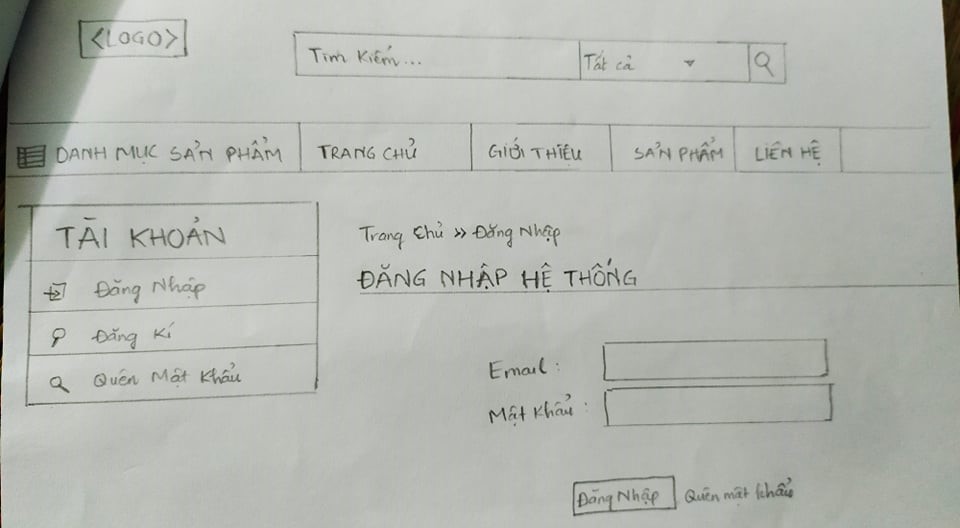 <LOGO>
Tìm Kiếm... Tất cả
DANH MỤC SẢN PHẨM TRANG CHỦ GIỚI THIỆU SẢN PHẨM LIÊN HỆ
TÀI KHOẢN
Đăng Nhập
Đăng Kí
Quên Mật Khẩu
Trang Chủ >> Đăng Nhập
ĐĂNG NHẬP HỆ THỐNG
Email :
Mật Khẩu :
Đăng Nhập Quên mật khẩu